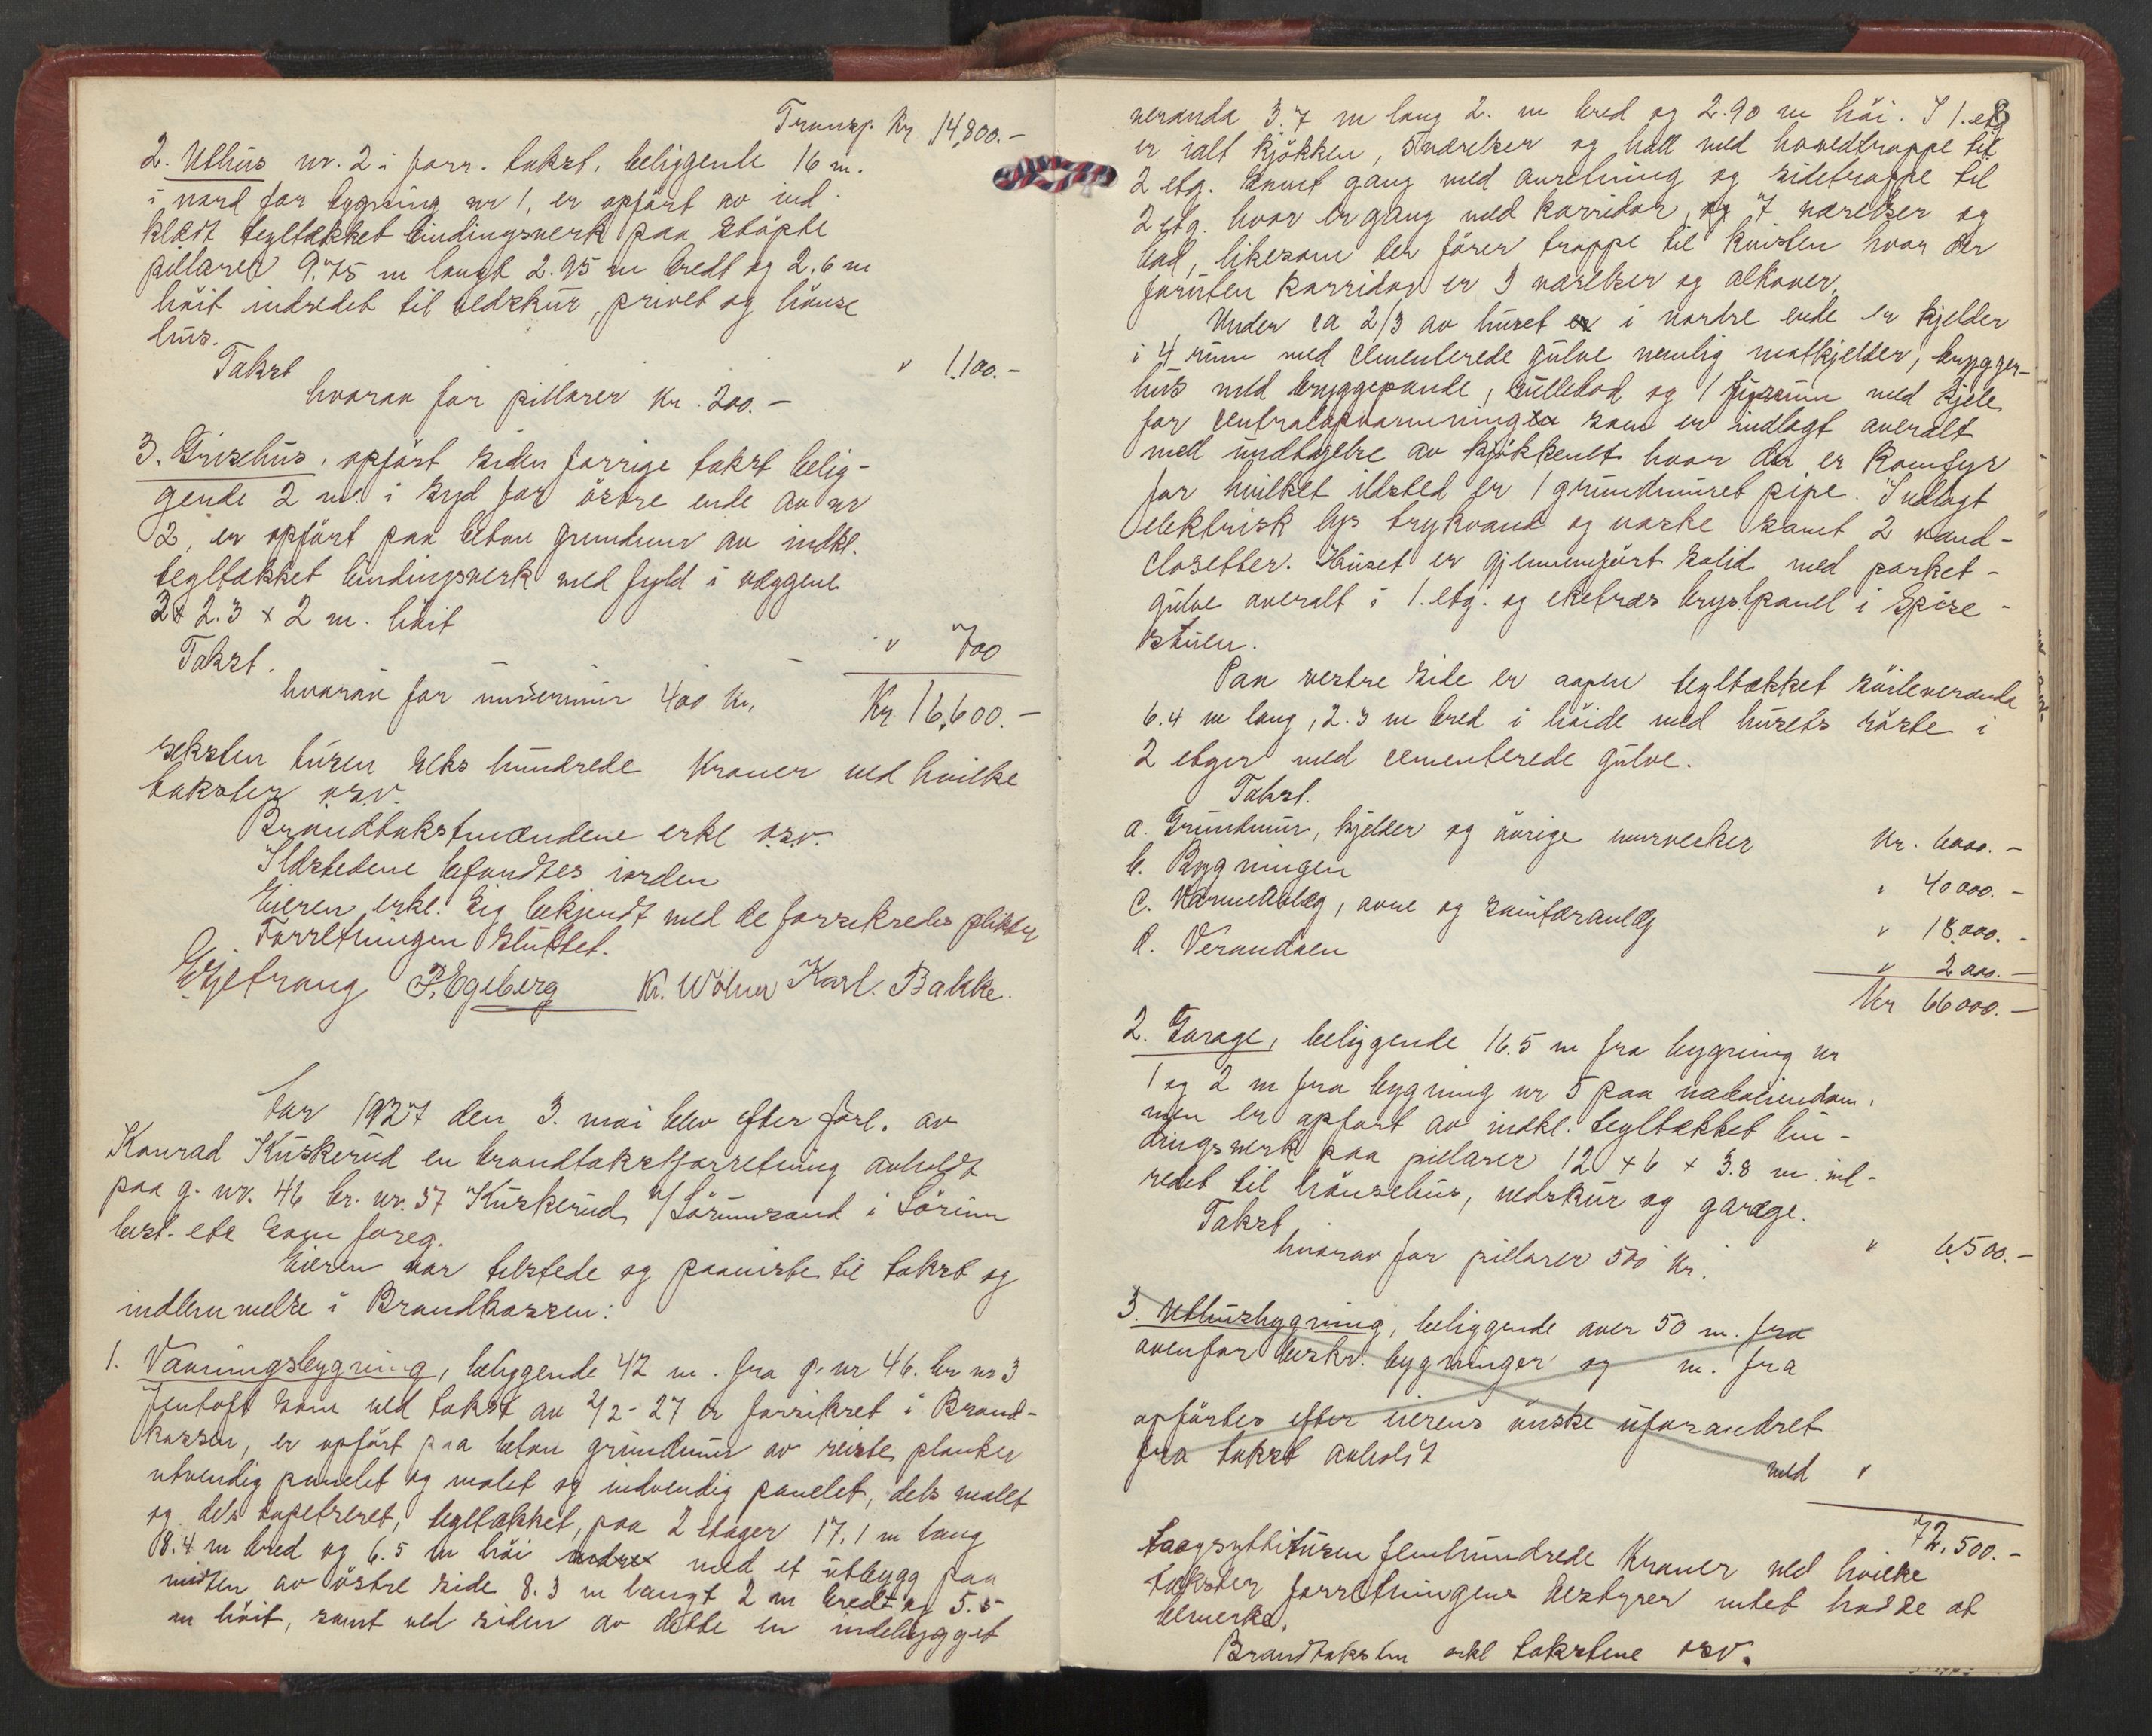 Transp. Kr 14,800.-
2. Uthus nr. 2 i forr. takst, beliggende 16 m.
i nord for bygning nr 1, er opført av ind-
klædt tegltækket bindingsverk paa støpte
pillarer 9.75 m langt 2.95 m bredt og 2.6 m
høit indredet til vedskur, privet og hønse
hus.
Takst " 1,100.-
hvorav for pillarer Kr. 200.-
3. Grisehus, opført siden forrige takst belig-
gende 2 m. i syd for østre ende av nr
2, er opført paa beton grundmur av indkl.
tegltækket bindingsverk med fyld i væggene
3 x 2.3 x 2 m. høit
Takst. " 700
hvorav for mur 400 Kr. Kr 16,600.-
seksten tusen seks hundrede Kroner ved hvilke
takster o.s.v.
Brandtakstmændene erkl o.s.v.
Ildstedene befandtes iorden
Eieren erkl. sig bekjendt med de forsikredes plikter
Forretningen sluttet.
P. Egeberg Kr. Wølner Karl. Bakke.
Aar 1927 den 3. mai blev efter forl. av
Konrad Kuskerud en brandtakstforretning avholdt
paa g. nr. 46 br. nr. 37 Kuskerud i Sørum
best. ete som foreg.
Eieren var tilstede og paaviste til takst og
indlemmelse i Brandkassen:
1. Vaaningsbygning, beliggende 42 m. fra g. nr 46. br nr 3
Jentoft som ved takst av 2/2-27 er forsikret i Brand-
kassen, er opført paa beton grundmur av reiste planker
utvendig panelet og malet og indvendig panelet, dels malet
og dels tapetseret, tegltækket, paa 2 etager 17.1 m lang
8.4 m bred og 6.5 m høi med et utbygg paa
midten av østre side 8.3 m langt 2 m bredt og 5.5
m høit, samt ved siden av dette en indebygget
8
veranda 3.7 m lang 2. m bred og 2.90 m høi. I 1. etg
er ialt kjøkken, 5 værelser og hall med hovedtrappe til
2 etg. samt gang med anretning og sidetrappe til
2 etg. hvor er gang med korridor, og 7 værelser og
bad, likesom der fører trappe til kvisten hvor der
foruten korridor er 3 værelser og alkover.
Under ca 2/3 av huset er i nordre ende er kjelder
i 4 rum med cementerede gulve nemlig matkjelder, brygger-
hus med bryggepande, rullebod og 1 fyrrum med kjele
for centralopvarmning som er indlagt overalt
med undtagelse av kjøkkenet hvor der er Komfyr
for hvilket ildsted er 1 grundmuret pipe. Indlagt
elektrisk lys trykvand og vaske samt 2 vand-
closetter. Huset er gjennemført solid med parket-
gulve overalt i 1. etg. og eketræs brystpanel i spise-
stuen.
Paa vestre side er aapen tegltækket søileveranda
6.4 m lang, 2.3 m bred i høide med husets røste i
2 etager med cementerede gulve.
Takst.
a. Grundmur, kjelder og øvrige murverker Kr. 6000.-
b. Bygningen " 40000.-
c. Varmeanlæg, ovne og sanitæranlæg " 18,000.-
d. Verandaen " 2000.-
Kr 66000.-
2. Garage, beliggende 16.5 m fra bygning nr
1 og 2 m fra bygning nr 5 paa naboeiendom-
men er opført av indkl. tegltækket bin-
dingsverk paa pillarer 12 x 6 x 3.8 m ind-
redet til hønsehus, vedskur og garage.
Takst " 6,500.-
hvorav for pillarer 500 Kr.
3. Uthusbygning, beliggende over 50 m. fra
ovenfor beskr. bygninger og m. fra
opførtes efter eierens ønske uforandret
fra takst avholdt
med "
72,500.-
femhundrede Kroner ved hvilke
takster forretningens bestyrer intet hadde at
bemerke.
Brandtakstm erkl takstene osv.